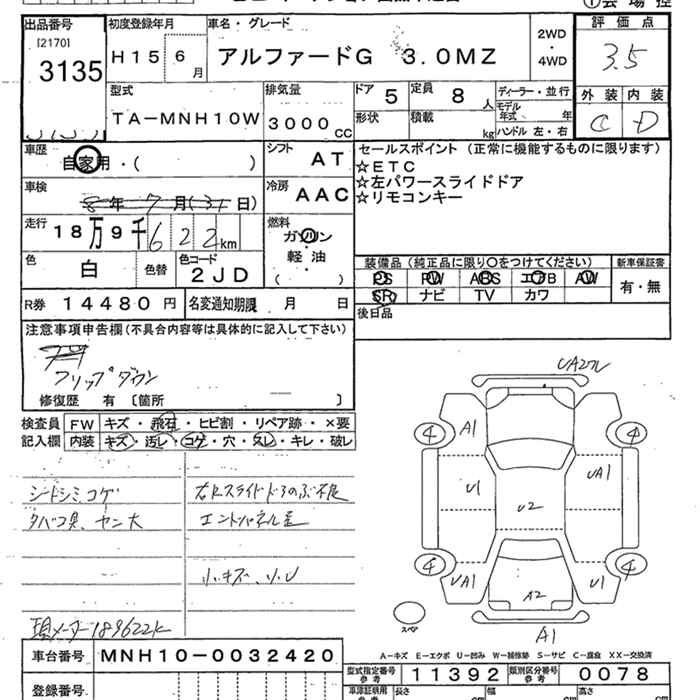 出品番号
[2170]
3135
初度登録年月
H15 6 月
車名・グレード
アルファードG 3.0MZ
2WD
・
4WD
評価点
3.5
外装 内装
C D
型式
TA-MNH10W
排気量
3000 cc
ドア 5
定員 8 人
形状
積載 kg
ディーラー・並行
モデル年式 年
ハンドル 左・右
車歴
自家用・( )
シフト AT
車検
8年 7月(31日)
冷房 AAC
走行
18万9千622km
燃料
ガソリン
・
軽油
( )
色 白
色替
色コード
2JD
R券 14480 円
名変通知期限 月 日
セールスポイント (正常に機能するものに限ります)
☆ETC
☆左パワースライドドア
☆リモコンキー
装備品(純正品に限り○をつけてください)
新車保証書
PS PW ABS エアB AW
SR ナビ TV カワ
有・無
後日品
注意事項申告欄(不具合内容等は具体的に記入して下さい)
フリップダウン
修復歴 有〔箇所 〕
検査員記入欄
FW キズ・飛石・ヒビ割・リペア跡・×要
内装 キズ・汚レ・コゲ・穴・スレ・キレ・破レ
シートシミ、コゲ
タバコ臭、ヤニ大
小キズ、小U
現メーター189622K
UA27レ
4 A1 4
U1 UA1
U2
4 UA1 U1 4
A2
A1
スペア
A-キズ E-エクボ U-凹み W-補修跡 S-サビ C-腐食 XX-交換済
車台番号 MNH10-0032420
型式指定番号
参考
11392
類別区分番号
参考
0078
登録番号
車庫証明用
参考
長さ
幅
高さ